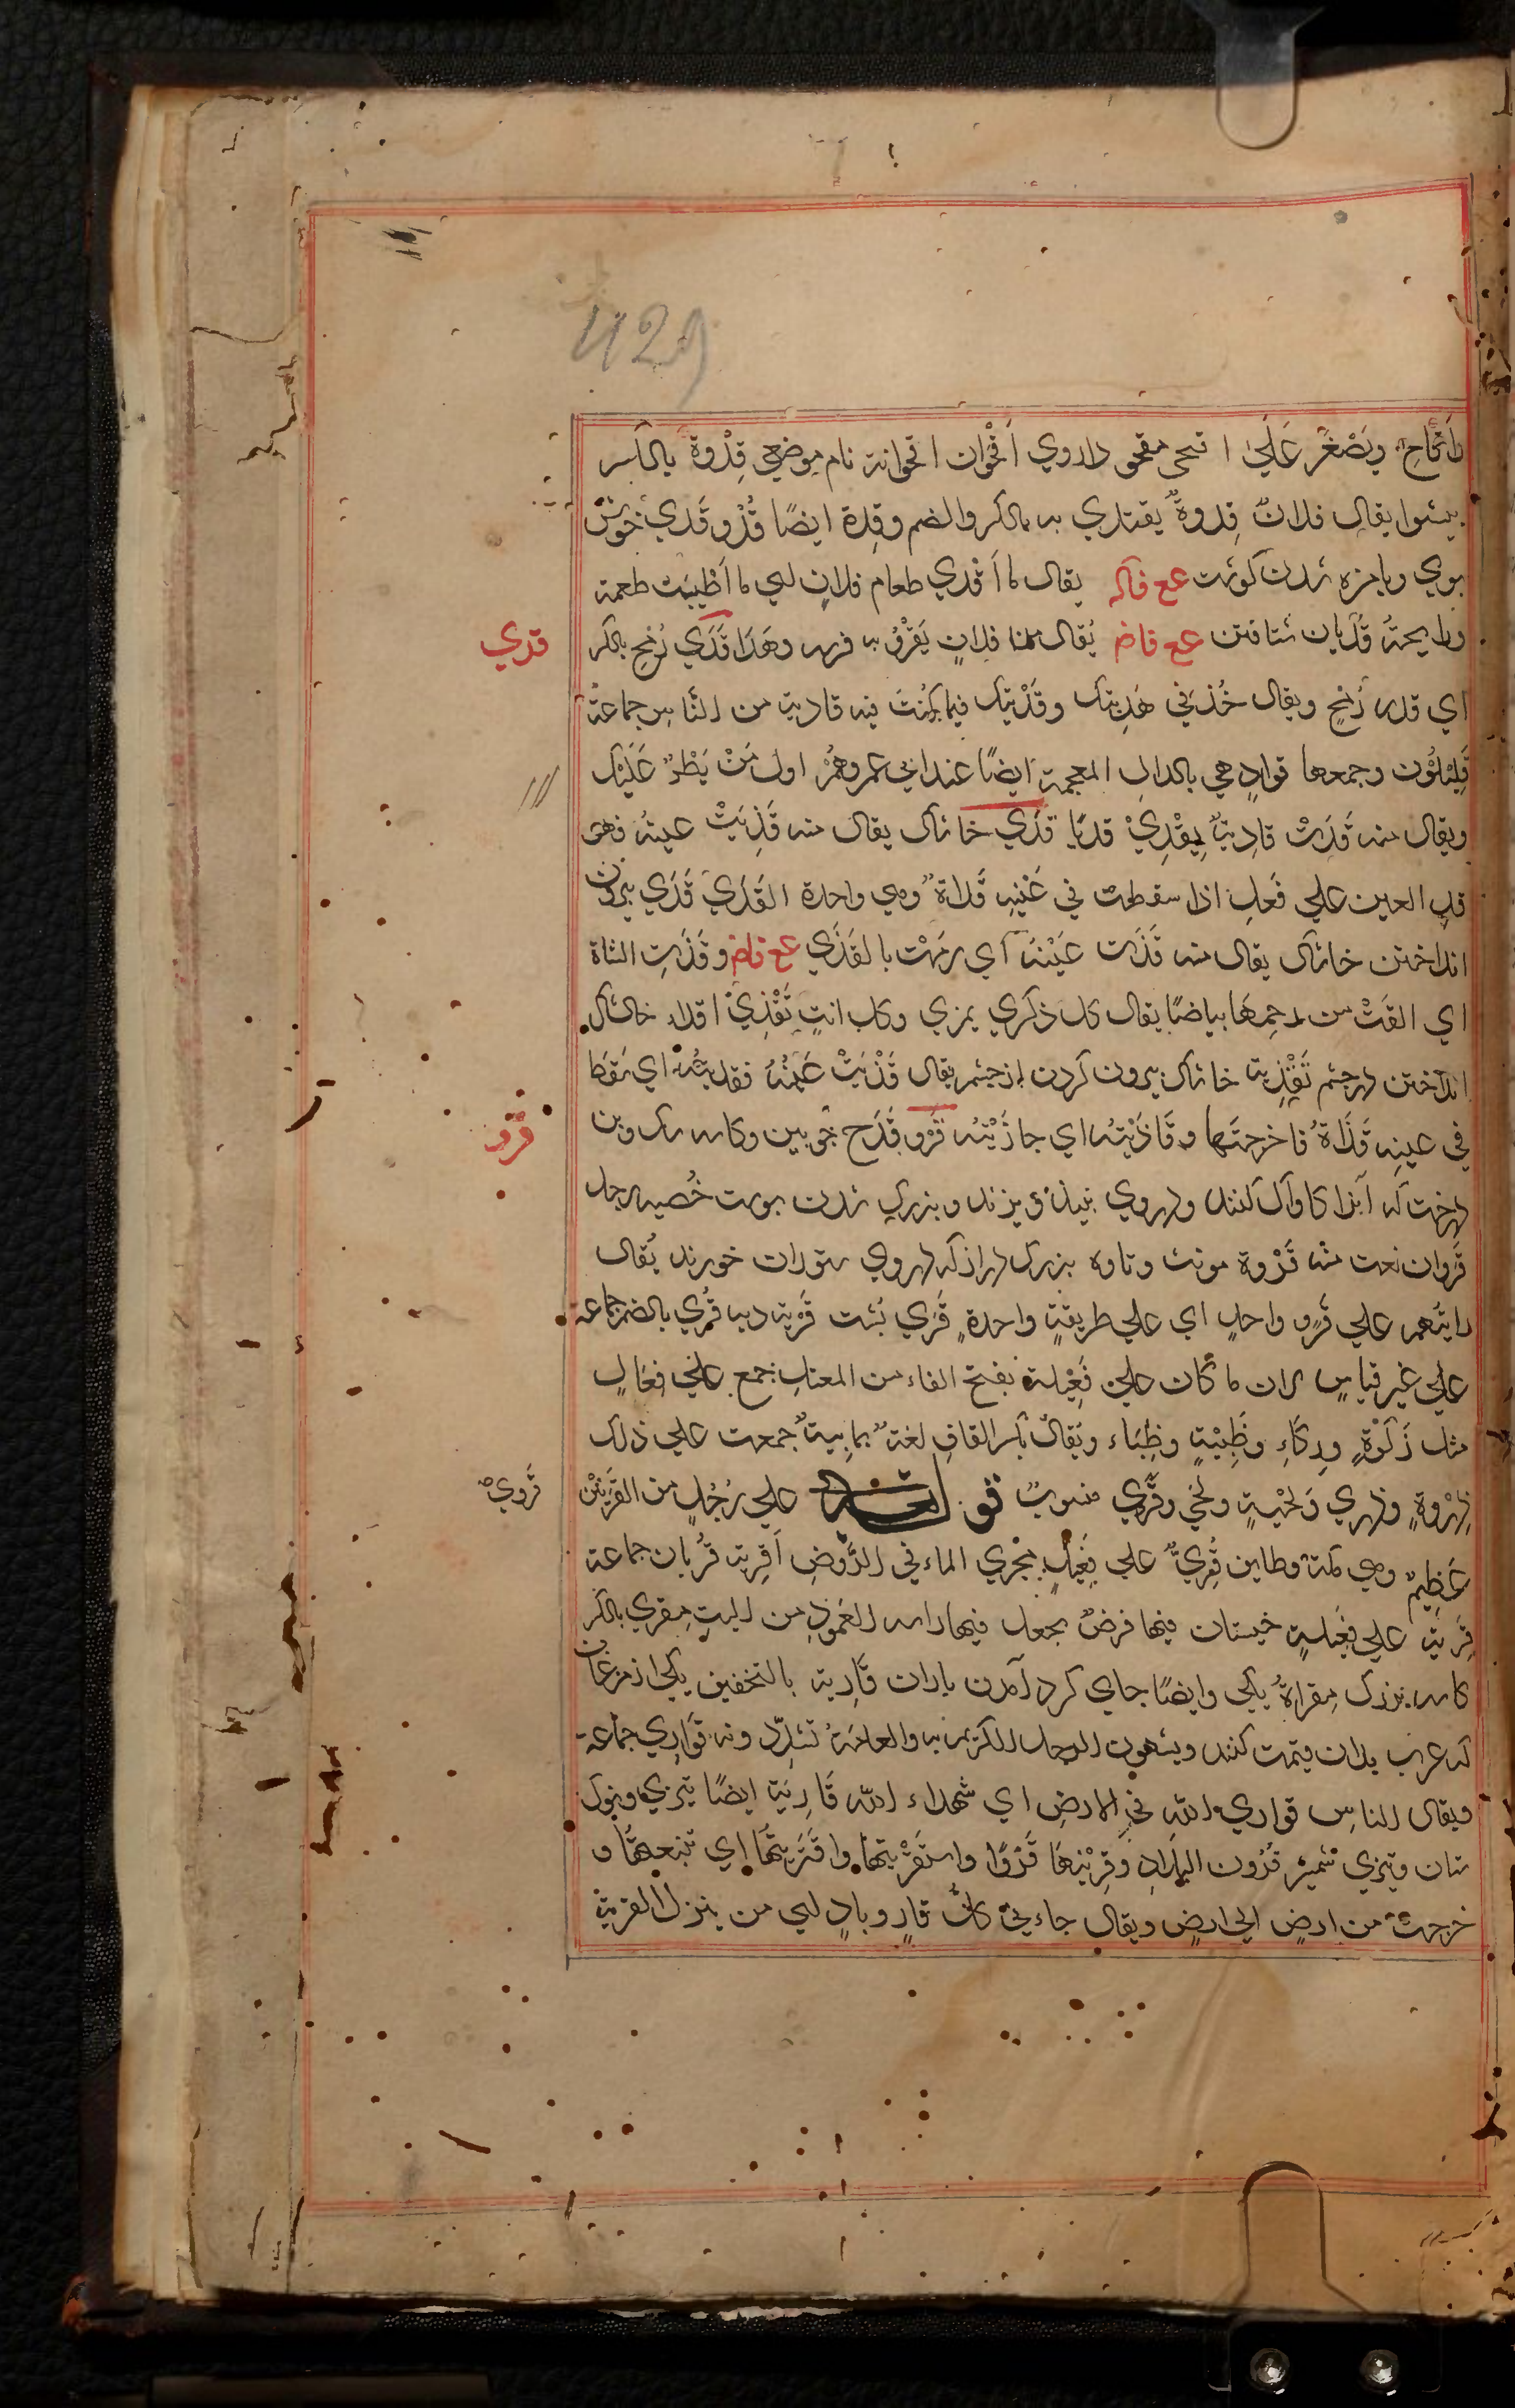 429
واَقَاحٍ ويُصَغَّر عَلَي اقيحي مقحو داروي اَقْحُوان اقحوانة نام موضعي قِدْوة بالكسر
پيشوا يقال فلانٌ قِدوةٌ يقتدي به بالكسر والضم وقِدة ايضًا قُدْو قَدي خوش
بوي وبامزه شدن كوشت ع ع فاكـ يقال ما اَقدي طعام فلانٍ اي ما اَطْيَبَ طعمه
ورايحته قَدَيان شتافتن ع ع فاض يُقال منه فلانٍ يَقْدُو به فرسه وهَذا قَدَي رُمْحٍ بالكسر
قدي
اي قدر رُمْحٍ ويقال خُذ في هَدْيتك وقَدْيتك فيما كُنتَ فيه قادية من النَّاس جماعة
قَلِيلُون وجمعها قوادٍ هي بالدال المعجمة ايضًا عند ابي عمرو هُمْ اول مَنْ يَطْرُ عَلَيْك
ويقال منه قَدَتْ قادِيةٌ يقْدِيْ قديًا قذَي خاشاك يقال منه قَذِيَتْ عينُه فهو
قذِ العين علي فَعِلٍ اذا سقطت في عَيْنِهِ قَذاة وهي واحدة القَذَيَ قَذَي بيرون
انداختن خاشاك يقال منه قَذَت عَيْنُه اَي رمَتْ بالقَذَي ع ع فاض وقَذَتِ الشاة
اي القَتْ من رحمِهَا بياضًا يقال كل ذكري يمذي وكل انثٍ تَقْذِيْ اقذاء خاشاك
انداختن درچشم تَقْذِية خاشاك بيرون كردن از چشم يقال قَذْيَتْ عَيْنُهُ فقذيتُه اي سَقَطَا
في عينِه قَذَاةٌ فاخرجتَها وقَاذَيْتُه اي جازَيْتُه قَرو قَدَح چوبين وكاسه سك وبن
قرو
درخت كه آنرا كاواك كنند ودروي نبيذ ريزند وبزرك شدن پوست خُصيه رجل
قَروان نعت منه قَرْوة مونث وتاوه بزرك دراز كه دروي ستوران خورند يُقال
رايتُهم علي قَروٍ واحدٍ اي علي طريقةٍ واحدةٍ قَرَي پُشت قَرْية ديه قُري بالضم جماعة
علي غير قياسٍ لان ما كان علي فَعْيلة بفتح الفاء من المعتلِ يجمع علي فِعَالٍ
مثل رَكْوةٍ ورِكَاءِ وظَبِيْةٍ وظِباء ويُقالُ بكسر القافِ لغة يمانِيةٌ جمعت علي ذلك
ذِرْوةٍ وذري ولَحْيةٍ ولحي وقَرَوِي منسوبٌ علي رَجُلٍ من القَرْيَتَيْن
قَروِيٌ
عَظيمٌ وهي مكة وطايف قُرِيٌّ علي فعيل مجْري الماء في الرَّوضِ اَقْرِية قُربان جماعة
قَرِيَّة علي فَعِيلةٍ خيستان فيها فرضٌ يجعل فيها راس العَمُودِ من البيتِ مِقري بالكسر
كاسه بزرك مِقراةٌ يكي وايضًا جاي كرد آمدن باران قَارِية بالتخفيف يكي از مرغان
كه عرب بدان تيمن كنند ويشبهون الرجل الكريم به والعامة تشدّد ونه قَوَارِي جماعة
ويقال الناس قواري الله في الارضِ اي شهداء الله قَارِيَة ايضًا تيزي ونوك
سنان وتيزي شمشير قَرَوْت البِلادِ وقَرَيْتهَا قَرْوًا واستَقْرَيْتها واقْتَرَيْتَهَا اي تتبعتُها و
خرجت من ارضٍ الي ارضٍ ويقال جاءني كلُّ قارٍ وبادٍ اي من ينزل القرية